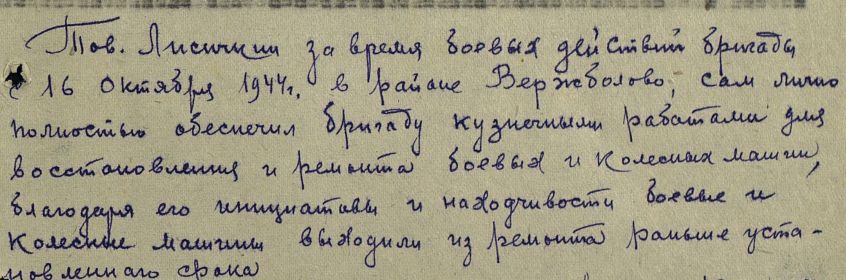 Тов. Лисичкин за время боевых действий бригады
с 16 октября 1944г. в районе Вержболово, сам лично
полностью обеспечил бригаду кузнечными работами для
восстановления и ремонта боевых и колесных машин,
благодаря его инициативы и находчивости боевые и
колесные машины выходили из ремонта раньше уста-
новленнаго срока